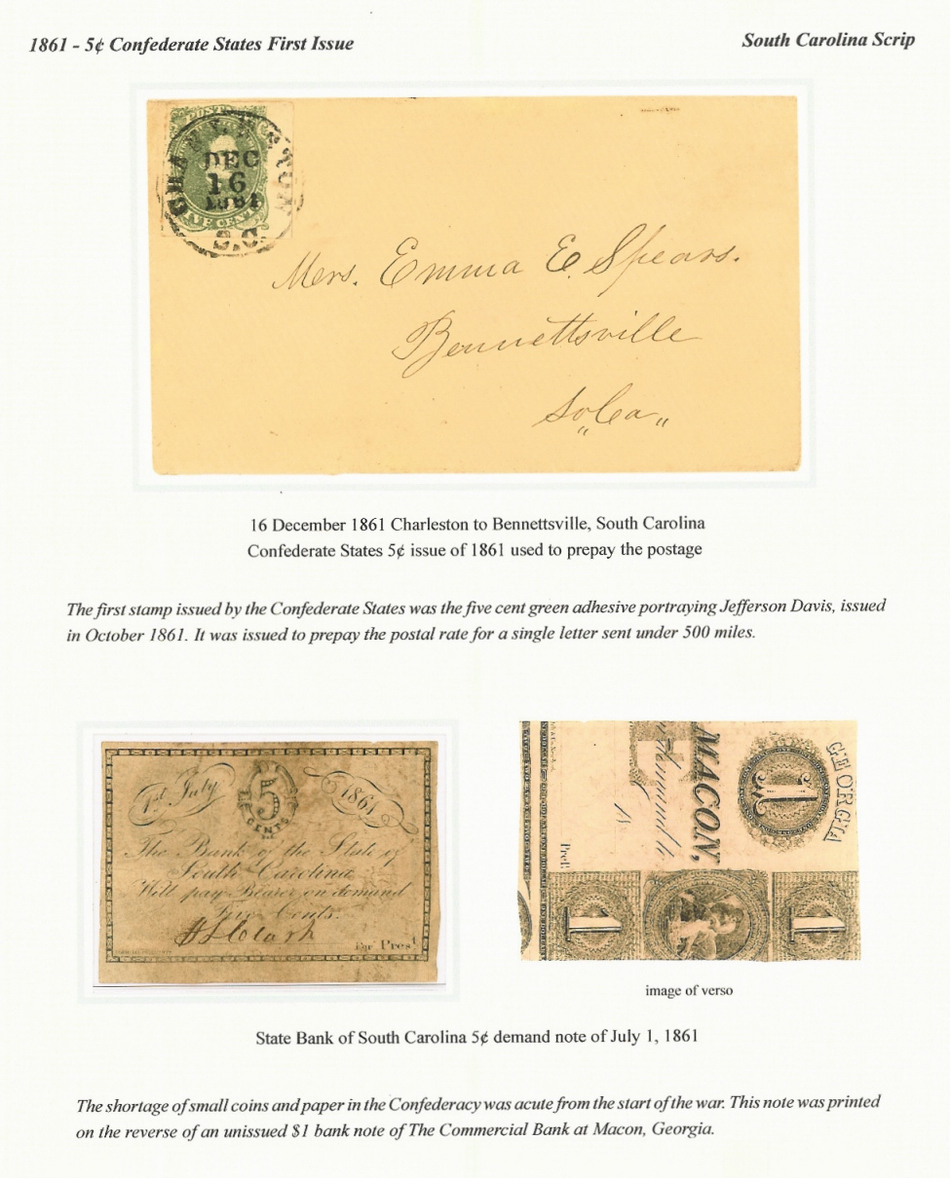 1861 - 5¢ Confederate States First Issue
South Carolina Scrip
POSTAGE
FIVE CENTS
CHARLESTON
DEC
16
1861
S.C.
Mrs. Emma E. Spears.
Bennettsville
So Ca
16 December 1861 Charleston to Bennettsville, South Carolina
Confederate States 5¢ issue of 1861 used to prepay the postage
The first stamp issued by the Confederate States was the five cent green adhesive portraying Jefferson Davis, issued
in October 1861. It was issued to prepay the postal rate for a single letter sent under 500 miles.
1st July
5
CENTS
1861
The Bank of the State of
South Carolina
Will pay Bearer on demand
Five Cents.
For Prest
MACON,
GEORGIA
1
demand
Prest
1
1
image of verso
State Bank of South Carolina 5¢ demand note of July 1, 1861
The shortage of small coins and paper in the Confederacy was acute from the start of the war. This note was printed
on the reverse of an unissued $1 bank note of The Commercial Bank at Macon, Georgia.